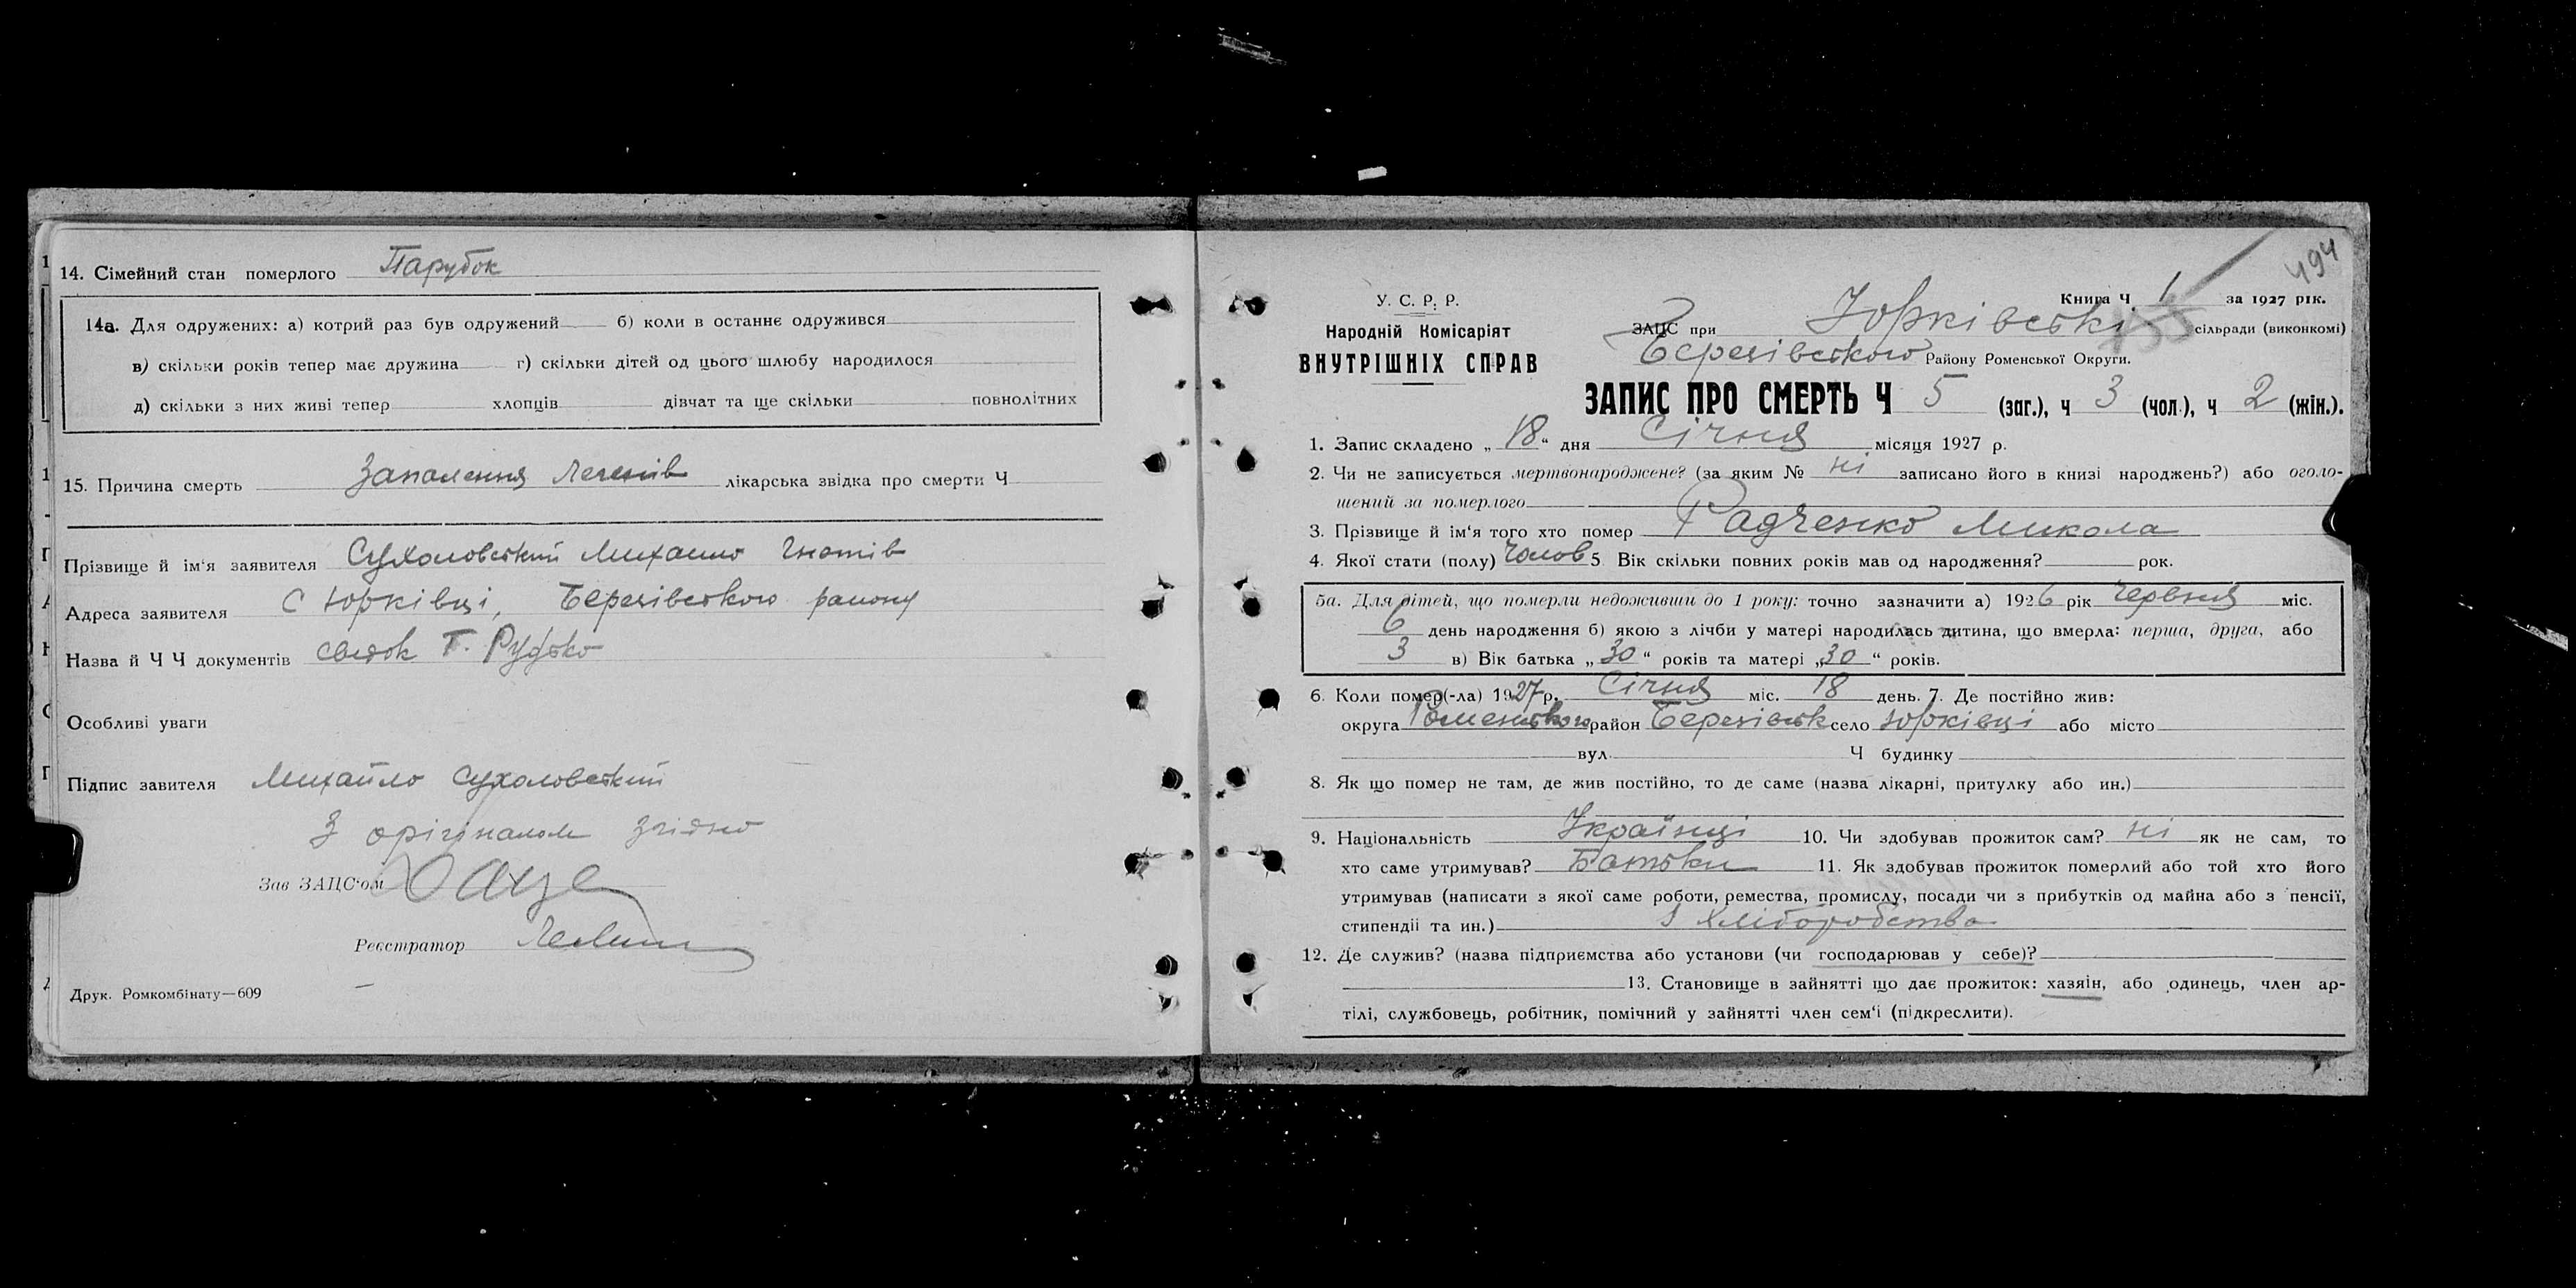 14. Сімейний стан померлого Парубок
14а. Для одружених: а) котрий раз був одружений б) коли в останнє одружився
в) скільки років тепер має дружина г) скільки дітей од цього шлюбу народилося
д) скільки з них живі тепер хлопців дівчат та ще скільки повнолітних
15. Причина смерть Запалення легенів лікарська звідка про смерти Ч
Прізвище й ім'я заявителя Сухоловський Михайло Гнатів
Адреса заявителя с Юрківці, Березівського району
Назва й Ч Ч документів свідок Т. Рудько
Особливі уваги
Підпис завителя Михайло Сухоловський
З орігіналом згідно
Зав ЗАЦС'ом
Реєстратор
Друк. Ромкомбінату—609
494
У. С. Р. Р.
Народній Комісаріят
ВНУТРІШНІХ СПРАВ
Книга Ч 1 за 1927 рік.
ЗАЦС при Юрківські сільради (виконкомі)
Березівського Району Роменської Округи.
ЗАПИС ПРО СМЕРТЬ Ч 5 (заг.), ч 3 (чол.), ч 2 (жін.).
1. Запис складено „ 18 “ дня Січня місяця 1927 р.
2. Чи не записується мертвонароджене? (за яким № ні записано його в книзі народжень?) або оголо-
шений за померлого
3. Прізвище й ім'я того хто помер Радченко Микола
4. Якої стати (полу) Чолов 5 Вік скільки повних років мав од народження? рок.
5а. Для дітей, що померли недоживши до 1 року: точно зазначити а) 1926 рік Червня міс.
6 день народження б) якою з лічби у матері народилась дитина, що вмерла: перша, друга, або
3 в) Вік батька „ 30 “ років та матері „ 30 “ років.
6. Коли помер(-ла) 1927 р. Січня міс. 18 день. 7. Де постійно жив:
округа Роменського район Березівськ село Юрківці або місто
вул. Ч будинку
8. Як що помер не там, де жив постійно, то де саме (назва лікарні, притулку або ин.)
9. Національність Українці 10. Чи здобував прожиток сам? ні як не сам, то
хто саме утримував? Батьки 11. Як здобував прожиток померлий або той хто його
утримував (написати з якої саме роботи, ремества, промислу, посади чи з прибутків од майна або з пенсії,
стипендії та ин.) з хліборобства
12. Де служив? (назва підприємства або установи (чи господарював у себе)?
13. Становище в зайнятті що дає прожиток: хазяін, або одинець, член ар-
тілі, службовець, робітник, помічний у зайнятті член сем'ї (підкреслити).